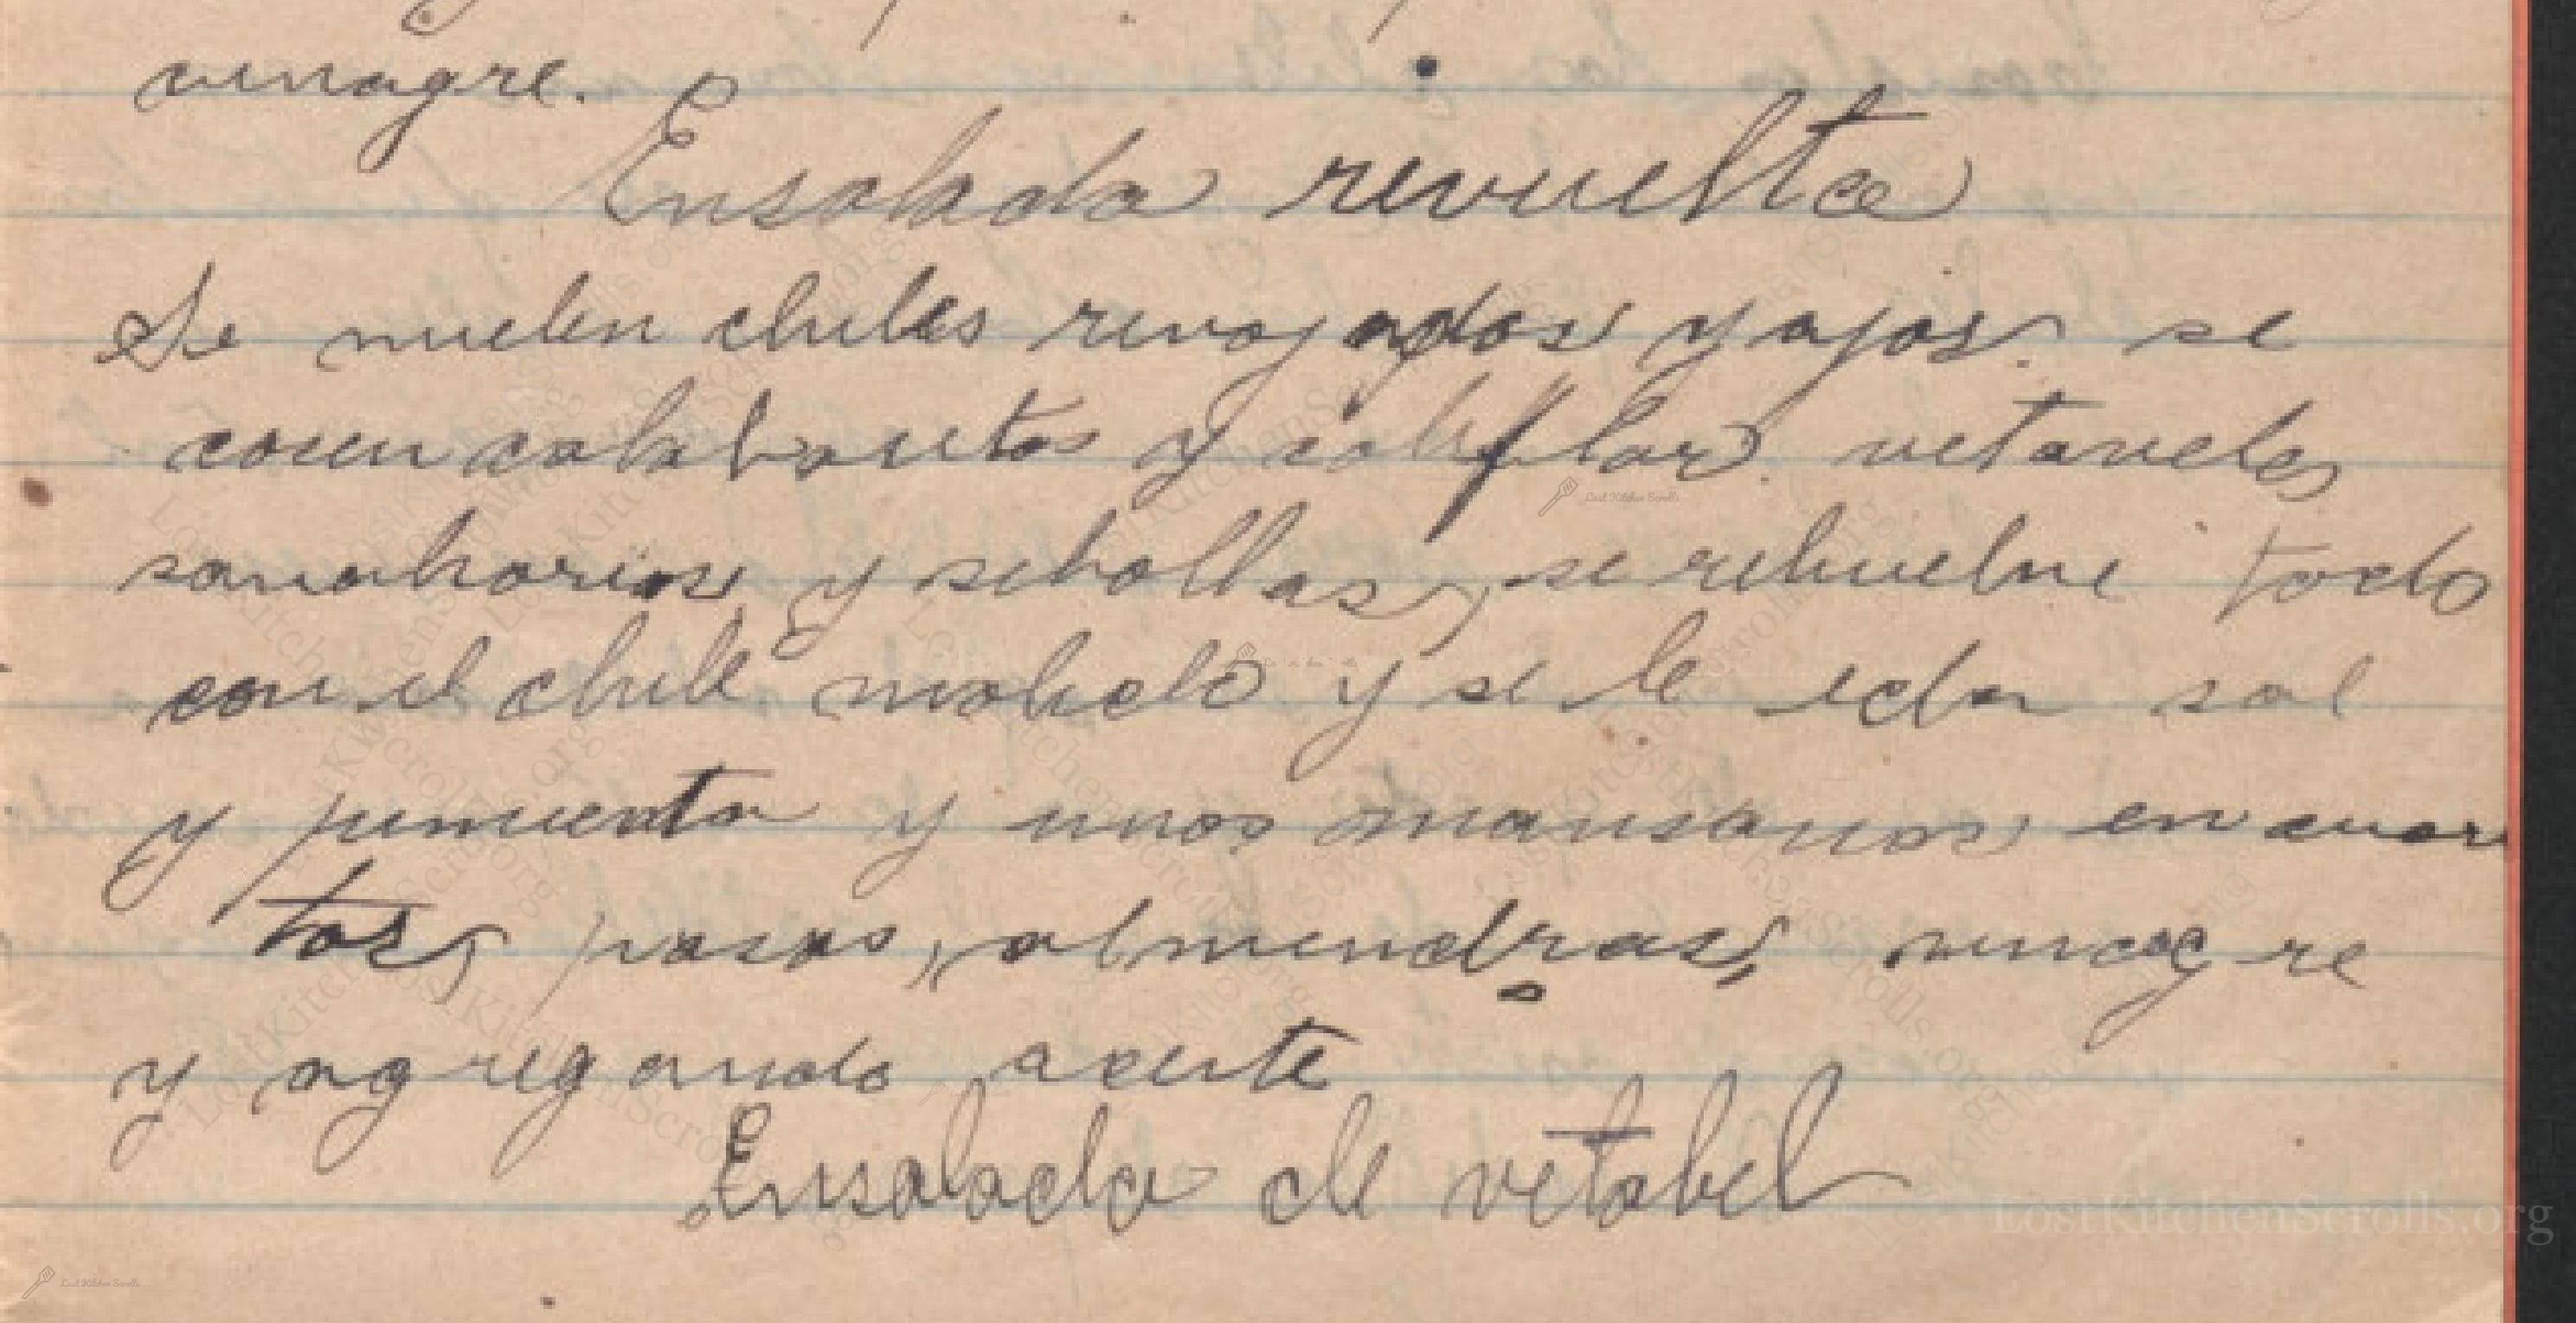 vinagre.
Ensalada revuelta
Se muelen chiles revojados y ajos. se
cosen calabasitas y coliflar. vetaveles
sanahorias y sebollas, se rehuelve todo
con el chile molido y se le echa sal
y pimienta y unas mansanas en cuar
tos, pasas, almendras, vinagre
y agregando aceite
Ensalada de vetabel
LostKitchenScrolls.org
Lost Kitchen Scrolls
Lost Kitchen Scrolls